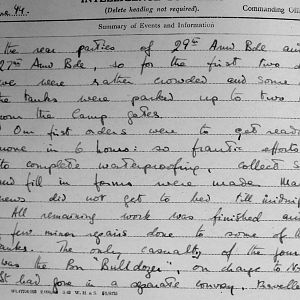 INTELLIGENCE
(Delete heading not required).
Commanding Offi
ne 44.
Summary of Events and Information
the rear parties of 29th Armd Bde an
27th Armd Bde, so for the first two d
we were rather crowded and some
the tanks were parked up to two
from the Camp gates.
Our first orders were to get read
move in 6 hours: so frantic efforts
to complete waterproofing, collect s
and fill in forms were made. Ma
crews did not get to bed till midni
All remaining work was finished an
few minor repairs done to some of th
tanks. The only casualty of the jour
was the Bn 'Bulldozer', on charge to
had gone in a separate convoy.